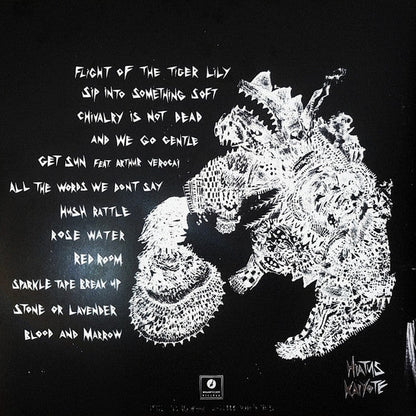 FLIGHT OF THE TIGER LILY
SIP INTO SOMETHING SOFT
CHIVALRY IS NOT DEAD
AND WE GO GENTLE
GET SUN FEAT ARTHUR VEROCAI
ALL THE WORDS WE DONT SAY
HUSH RATTLE
ROSE WATER
RED ROOM
SPARKLE TAPE BREAK UP
STONE OR LAVENDER
BLOOD AND MARROW
HIATUS
KAIYOTE